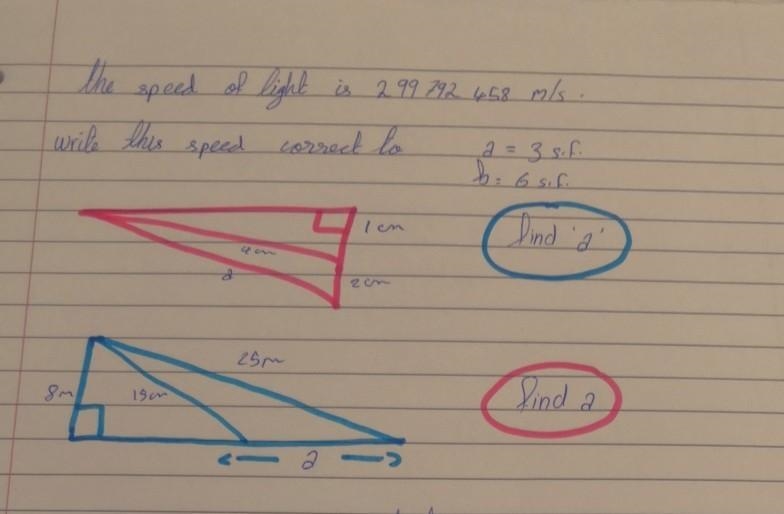 the speed of light is 299 792 458 m/s.
write this speed correct to
a = 3 s.f.
b = 6 s.f.
1 cm
4cm
a
2cm
find 'a'
25m
8m
a
find a